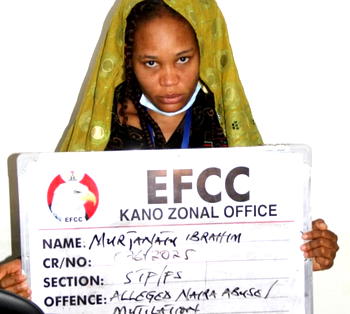 EFCC
EFCC
KANO ZONAL OFFICE
NAME: MURJANATU IBRAHIM
CR/NO: /2025
SECTION: SIP/FS
OFFENCE: ALLEGED NAIRA ABUSE/
MUTILATION